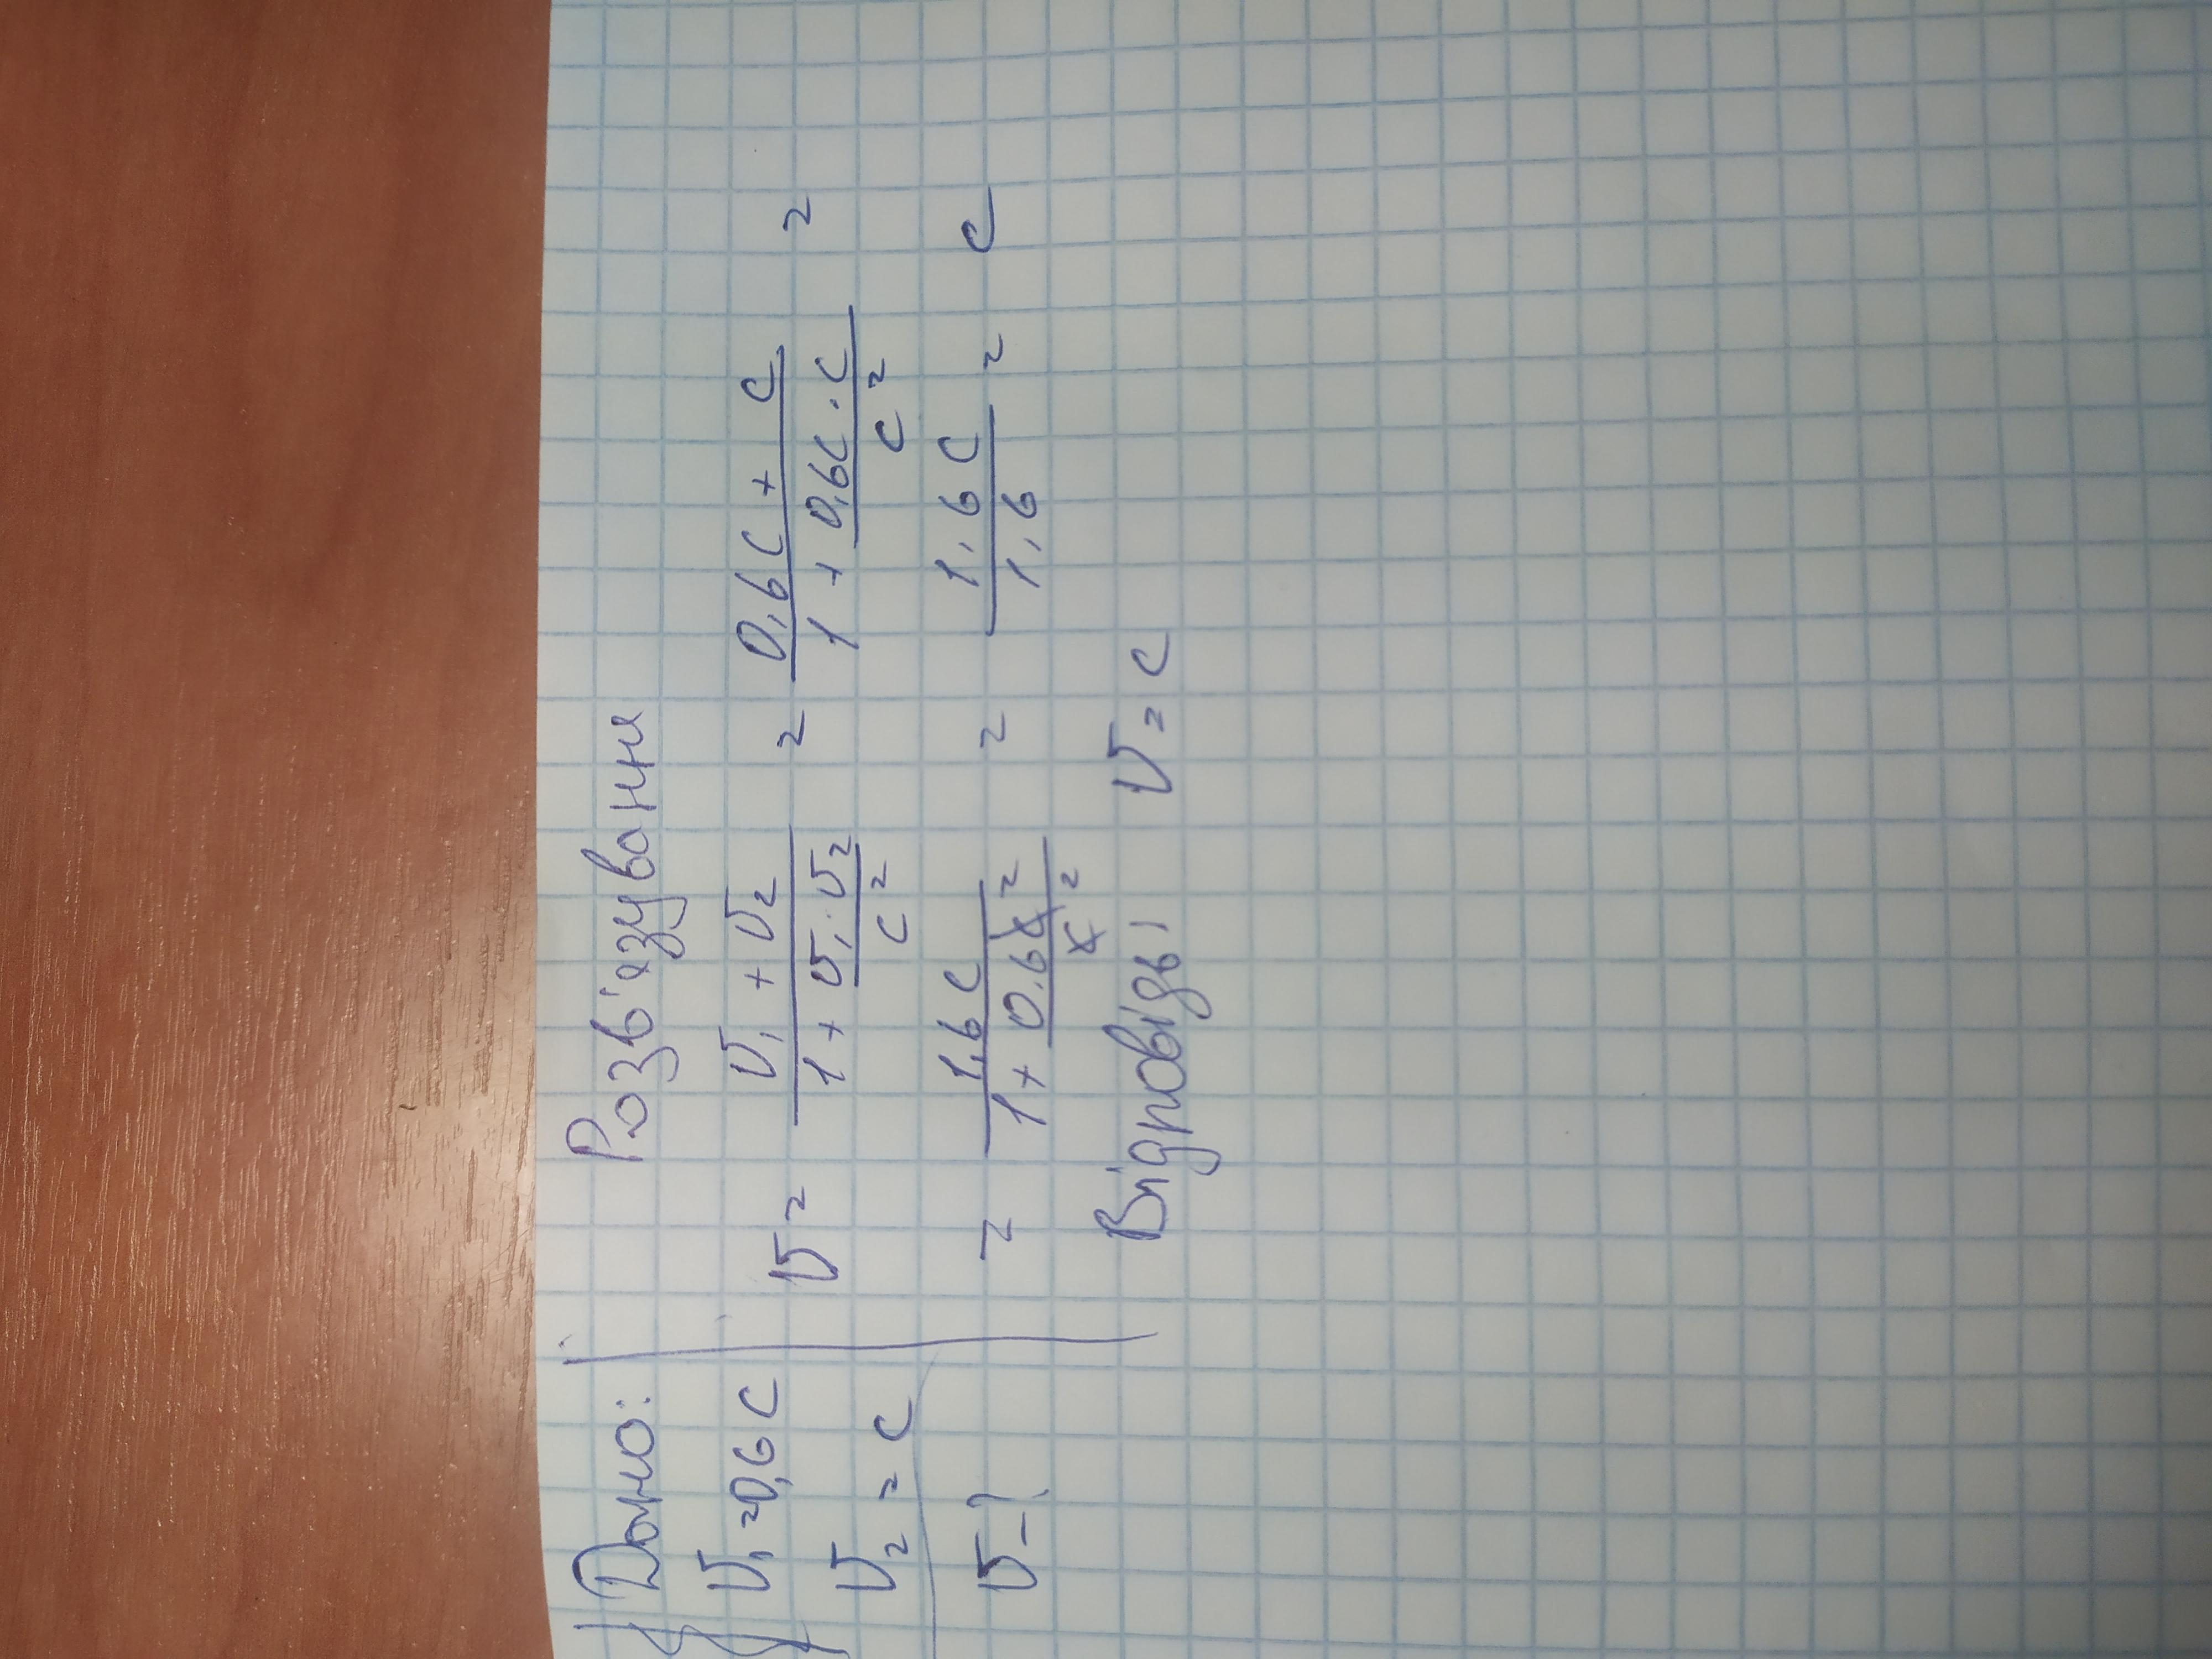 Дано:
υ₁ = 0,6 C
υ₂ = C
υ - ?
Розв'язування
υ = (υ₁ + υ₂) / (1 + (υ₁ · υ₂) / c²) = (0,6 C + C) / (1 + (0,6C · C) / C²) =
= 1,6 C / (1 + 0,6c² / c²) = 1,6 C / 1,6 = C
Відповідь: υ = C